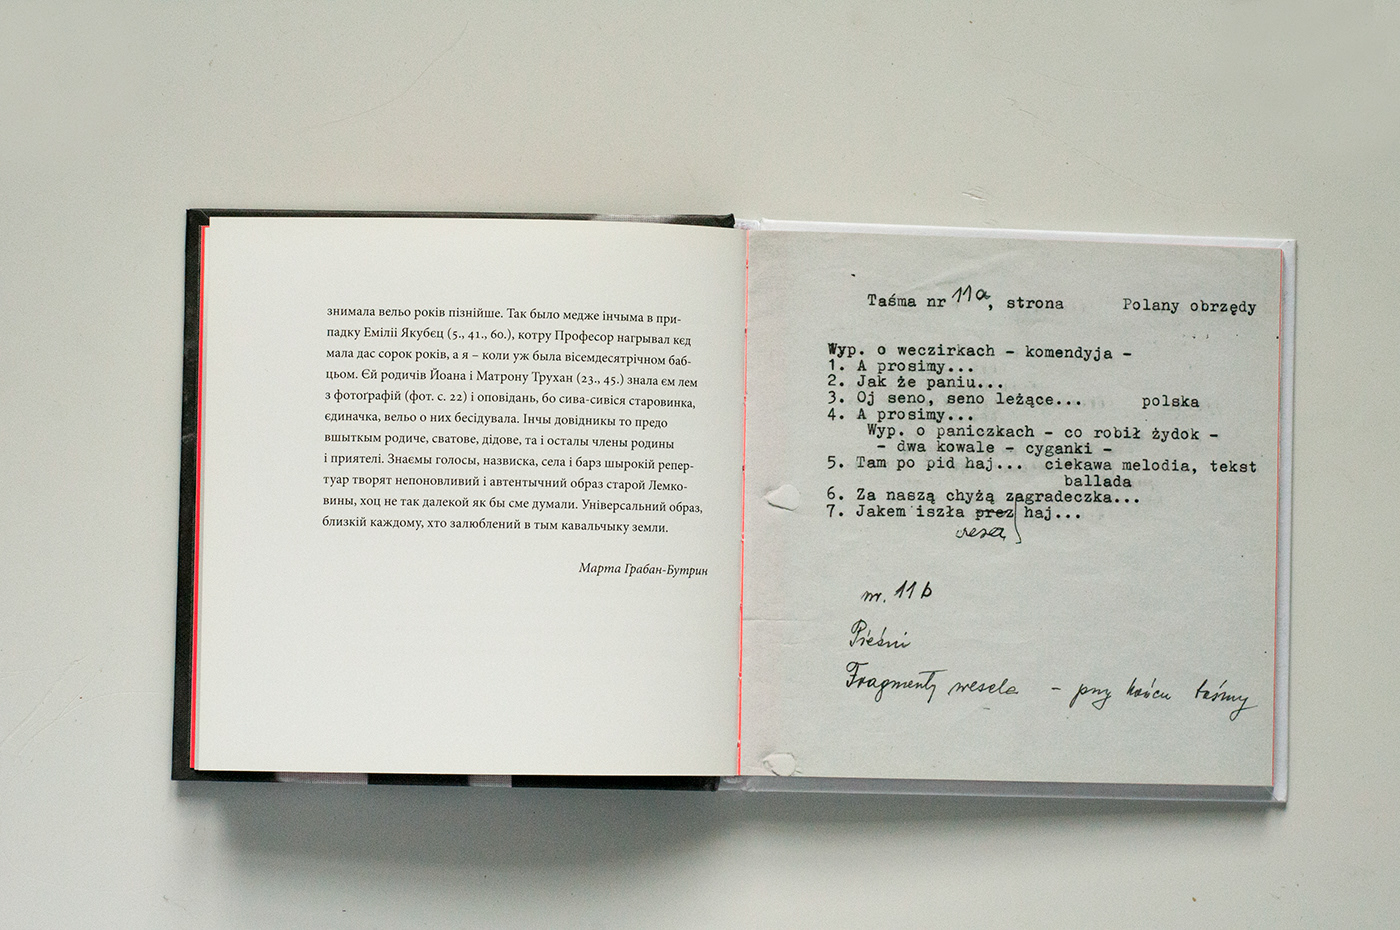 знимала вельо років пізнійше. Так было медже інчыма в при-
падку Емілії Якубєц (5., 41., 60.), котру Професор нагрывал кєд
мала дас сорок років, а я – коли уж была вісемдесятрічном баб-
цьом. Єй родичів Йоана і Матрону Трухан (23., 45.) знала єм лем
з фотоґрафій (фот. с. 22) і оповідань, бо сива-сивіся старовинка,
єдиначка, вельо о них бесідувала. Інчы довідникы то предо
вшыткым родиче, сватове, дідове, та і осталы члены родины
і приятелі. Знаємы голосы, назвиска, села і барз шырокій репер-
туар творят непоновливий і автентычний образ старой Лемко-
вины, хоц не так далекой як бы сме думали. Універсальний образ,
близкій каждому, хто залюблений в тым кавальчыку земли.
Марта Грабан-Бутрин
Taśma nr 11a, strona Polany obrzędy
Wyp. o weczirkach - komendyja -
1. A prosimy...
2. Jak że paniu...
3. Oj seno, seno leżące... polska
4. A prosimy...
Wyp. o paniczkach - co robił żydok -
- dwa kowale - cyganki -
5. Tam po pid haj... ciekawa melodia, tekst
ballada
6. Za naszą chyżą zagradeczka...
7. Jakem iszła prez haj...
nr. 11 b
Pieśni
Fragmenty wesela - przy końcu taśmy